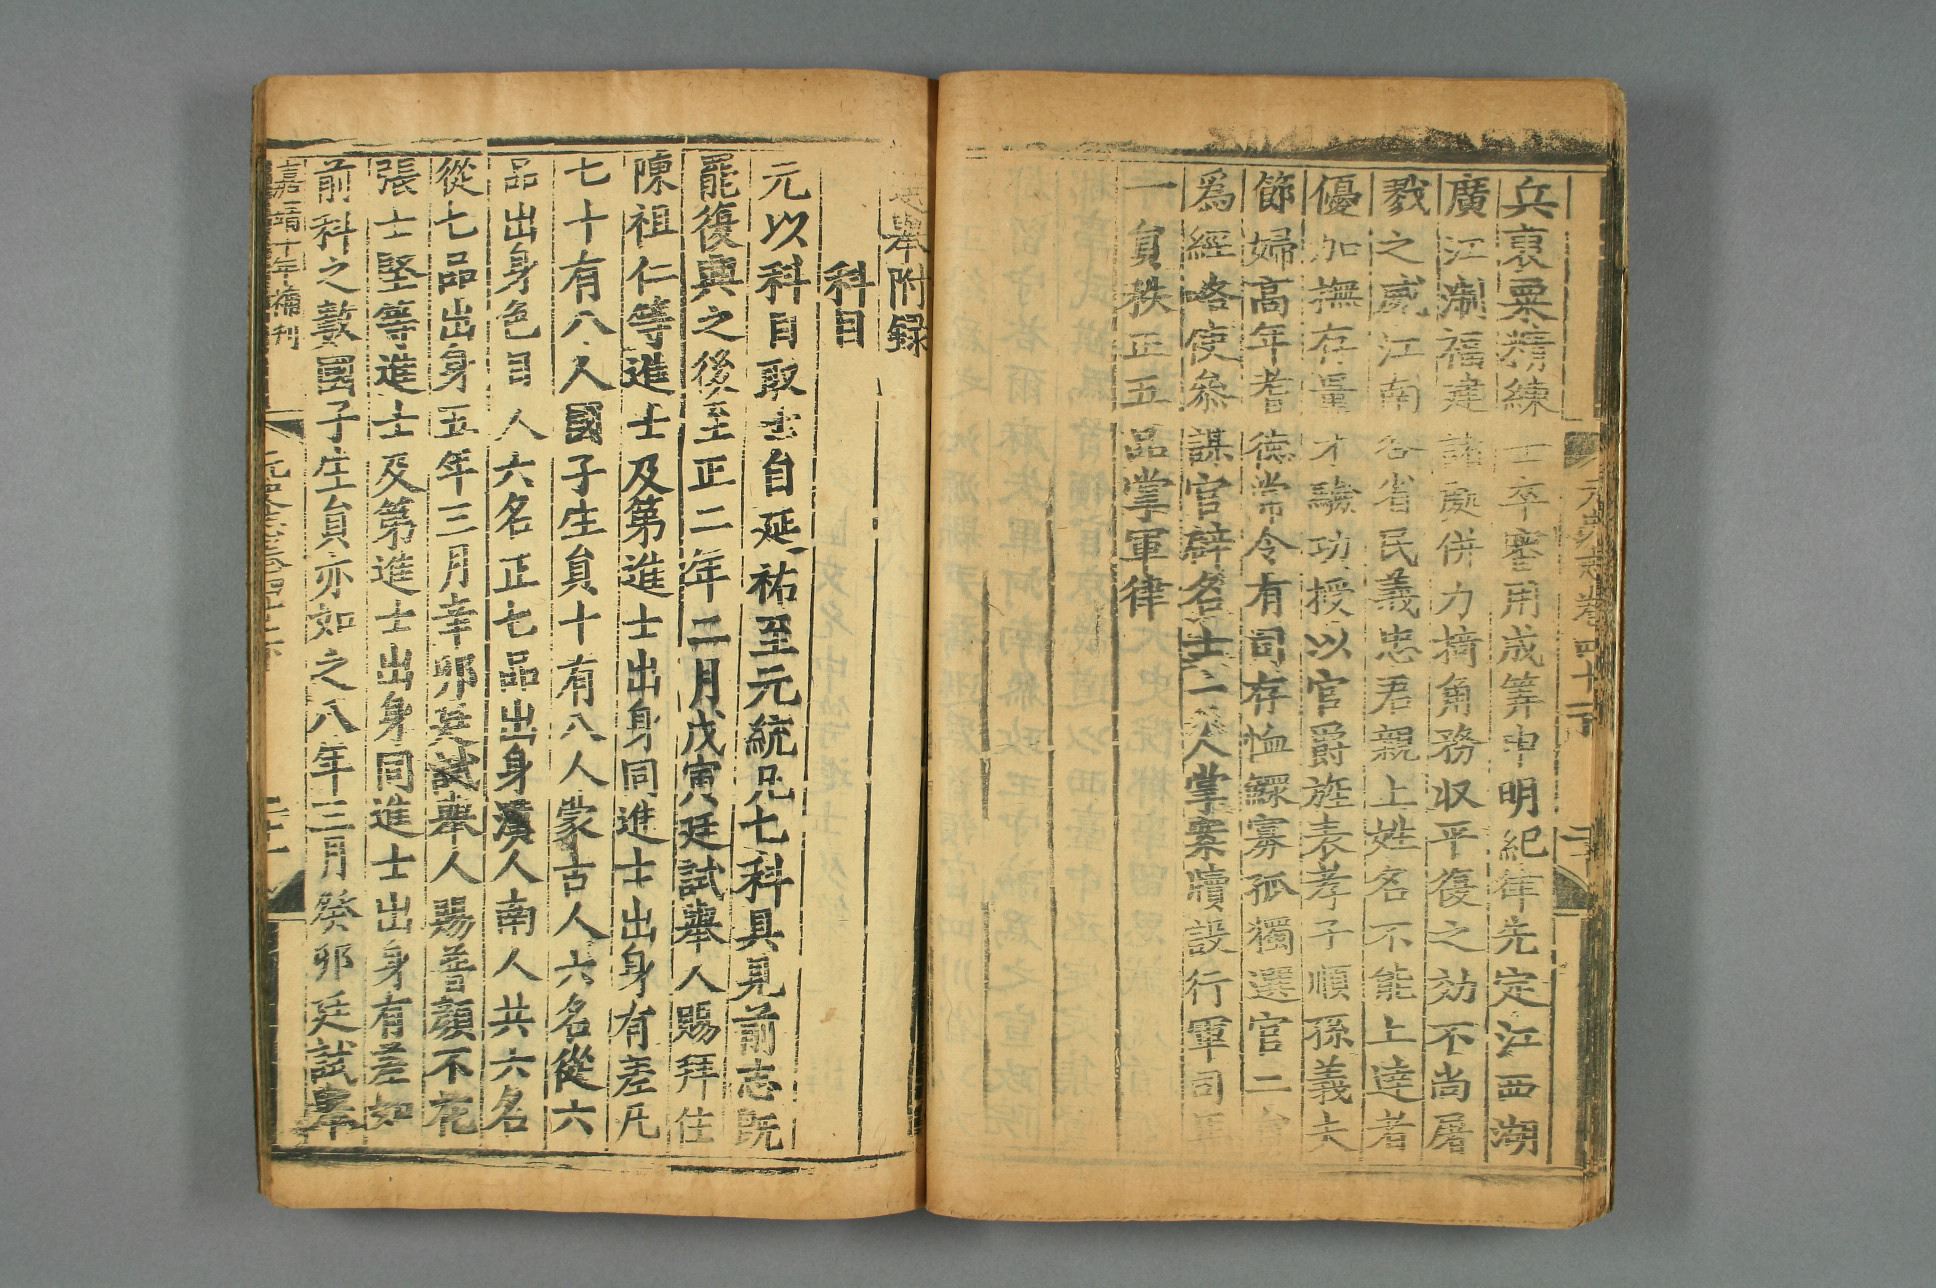 兵裒粟精練士卒審用成筭申明紀律先定江西湖
廣江淛福建諸處併力掎角務収平復之効不尚屠
戮之威江南各省民義忠君親上姓名不能上逹者
優加撫存量才驗功授以官爵旌表孝子順孫義夫
節婦高年耆德常令有司存恤鰥寡孤獨選官二
爲經略使參謀官辟名士二人掌案牘設行軍司馬
一員秩正五品掌軍律
元史志卷四十二下
二十
選舉附録
科目
元以科目取士自延祐至元統凡七科具見前志既
罷復興之後至正二年三月戊寅廷試舉人賜拜住
陳祖仁等進士及第進士出身同進士出身有差凡
七十有八人國子生員十有八人蒙古人六名從六
品出身色目人六名正七品出身漢人南人共六名
從七品出身五年三月辛卯廷試舉人賜普顏不花
張士堅等進士及第進士出身同進士出身有差如
前科之數國子生員亦如之八年三月癸卯廷試舉
嘉靖十年補刊
二十一